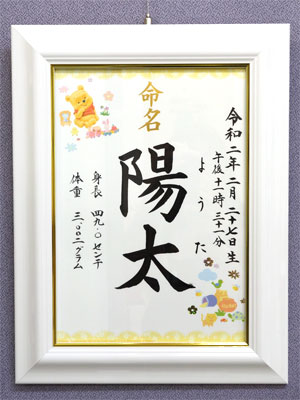 令和二年二月二十七日生
午後十一時三十一分
命名
陽太
ようた
身長 四九.〇センチ
体重 三.〇〇二グラム